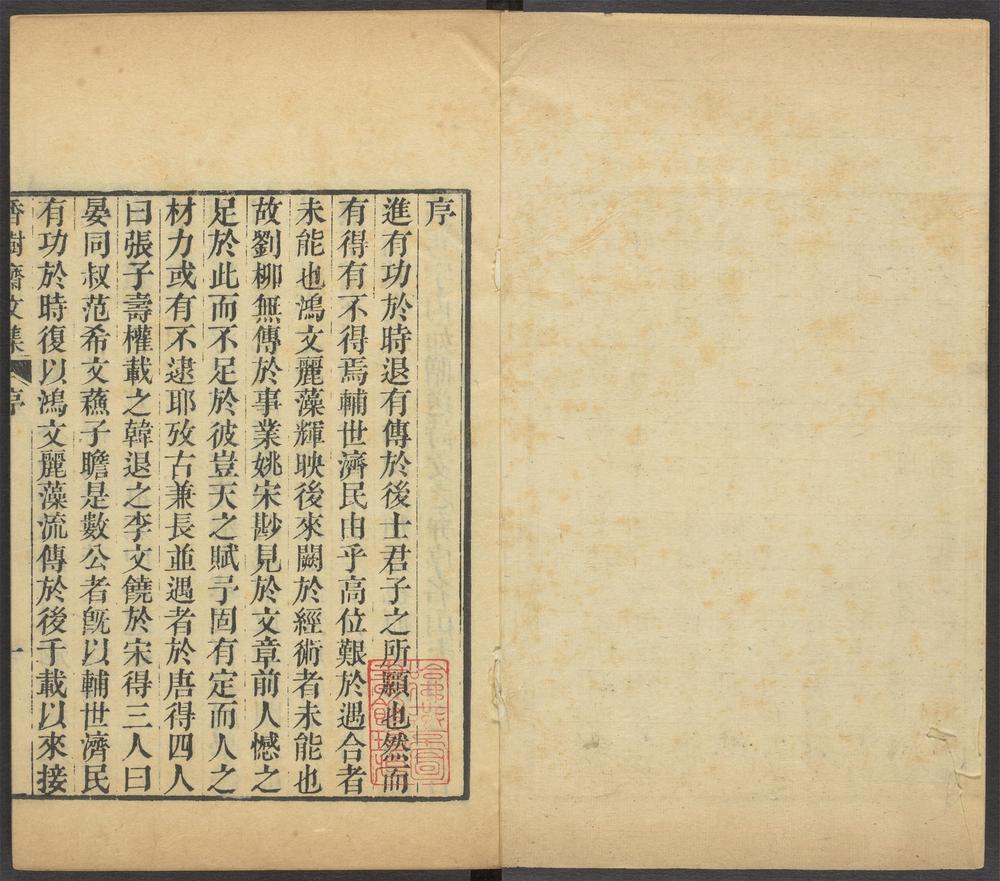 序
進有功於時退有傳於後士君子之所願也然而
有得有不得焉輔世濟民由乎高位艱於遇合者
未能也鴻文麗藻輝映後來闕於經術者未能也
故劉柳無傳於事業姚宋尠見於文章前人憾之
足於此而不足於彼豈天之賦予固有定而人之
材力或有不逮耶攷古兼長並遇者於唐得四人
曰張子壽權載之韓退之李文饒於宋得三人曰
晏同叔范希文蘇子瞻是數公者旣以輔世濟民
有功於時復以鴻文麗藻流傳於後千載以來接
樹齋文集 序 一
哈佛燕京圖書館珍藏